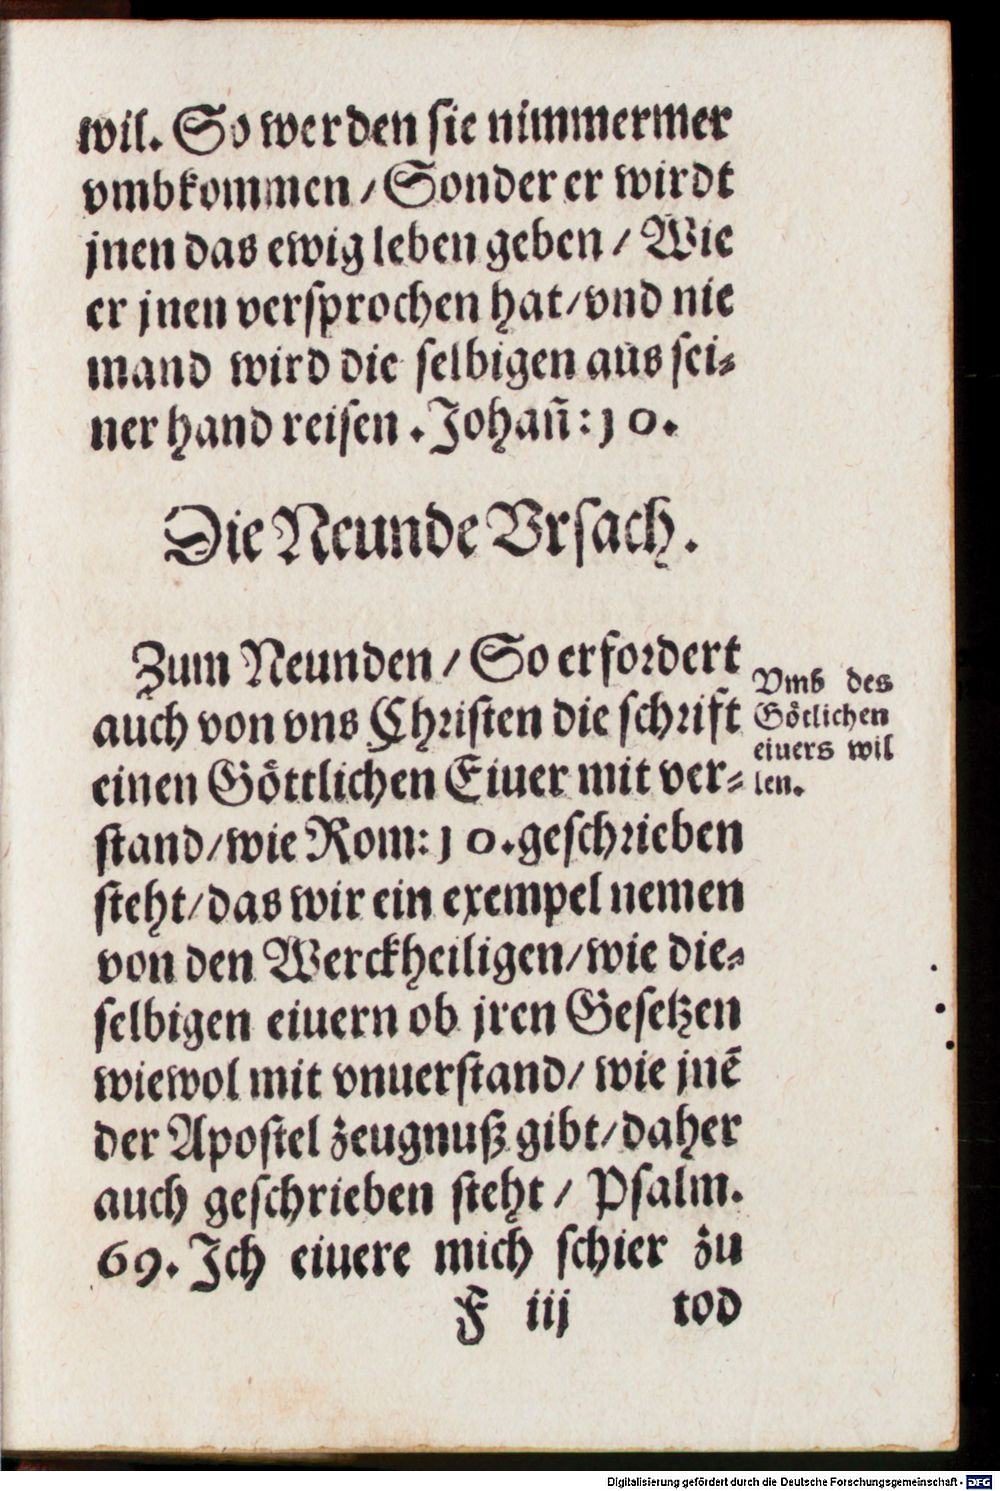 wil. So werden sie nimmermer
vmbkommen / Sonder er wirdt
jnen das ewig leben geben / Wie
er jnen versprochen hat / vnd nie
mand wird die selbigen aus sei⸗
ner hand reisen . Johañ: 10.
Die Neunde Vrsach.
Zum Neunden / So erfordert
auch von vns Christen die schrift
einen Göttlichen Eiuer mit ver⸗
stand / wie Rom: 10. geschrieben
steht / das wir ein exempel nemen
von den Werckheiligen / wie die⸗
selbigen eiuern ob jren Gesetzen
wiewol mit vnuerstand / wie jnē
der Apostel zeugnuß gibt / daher
auch geschrieben steht / Psalm.
69. Ich eiuere mich schier zu
F iij tod
Vmb des
Götlichen
eiuers wil
len.
Digitalisierung gefördert durch die Deutsche Forschungsgemeinschaft - DFG